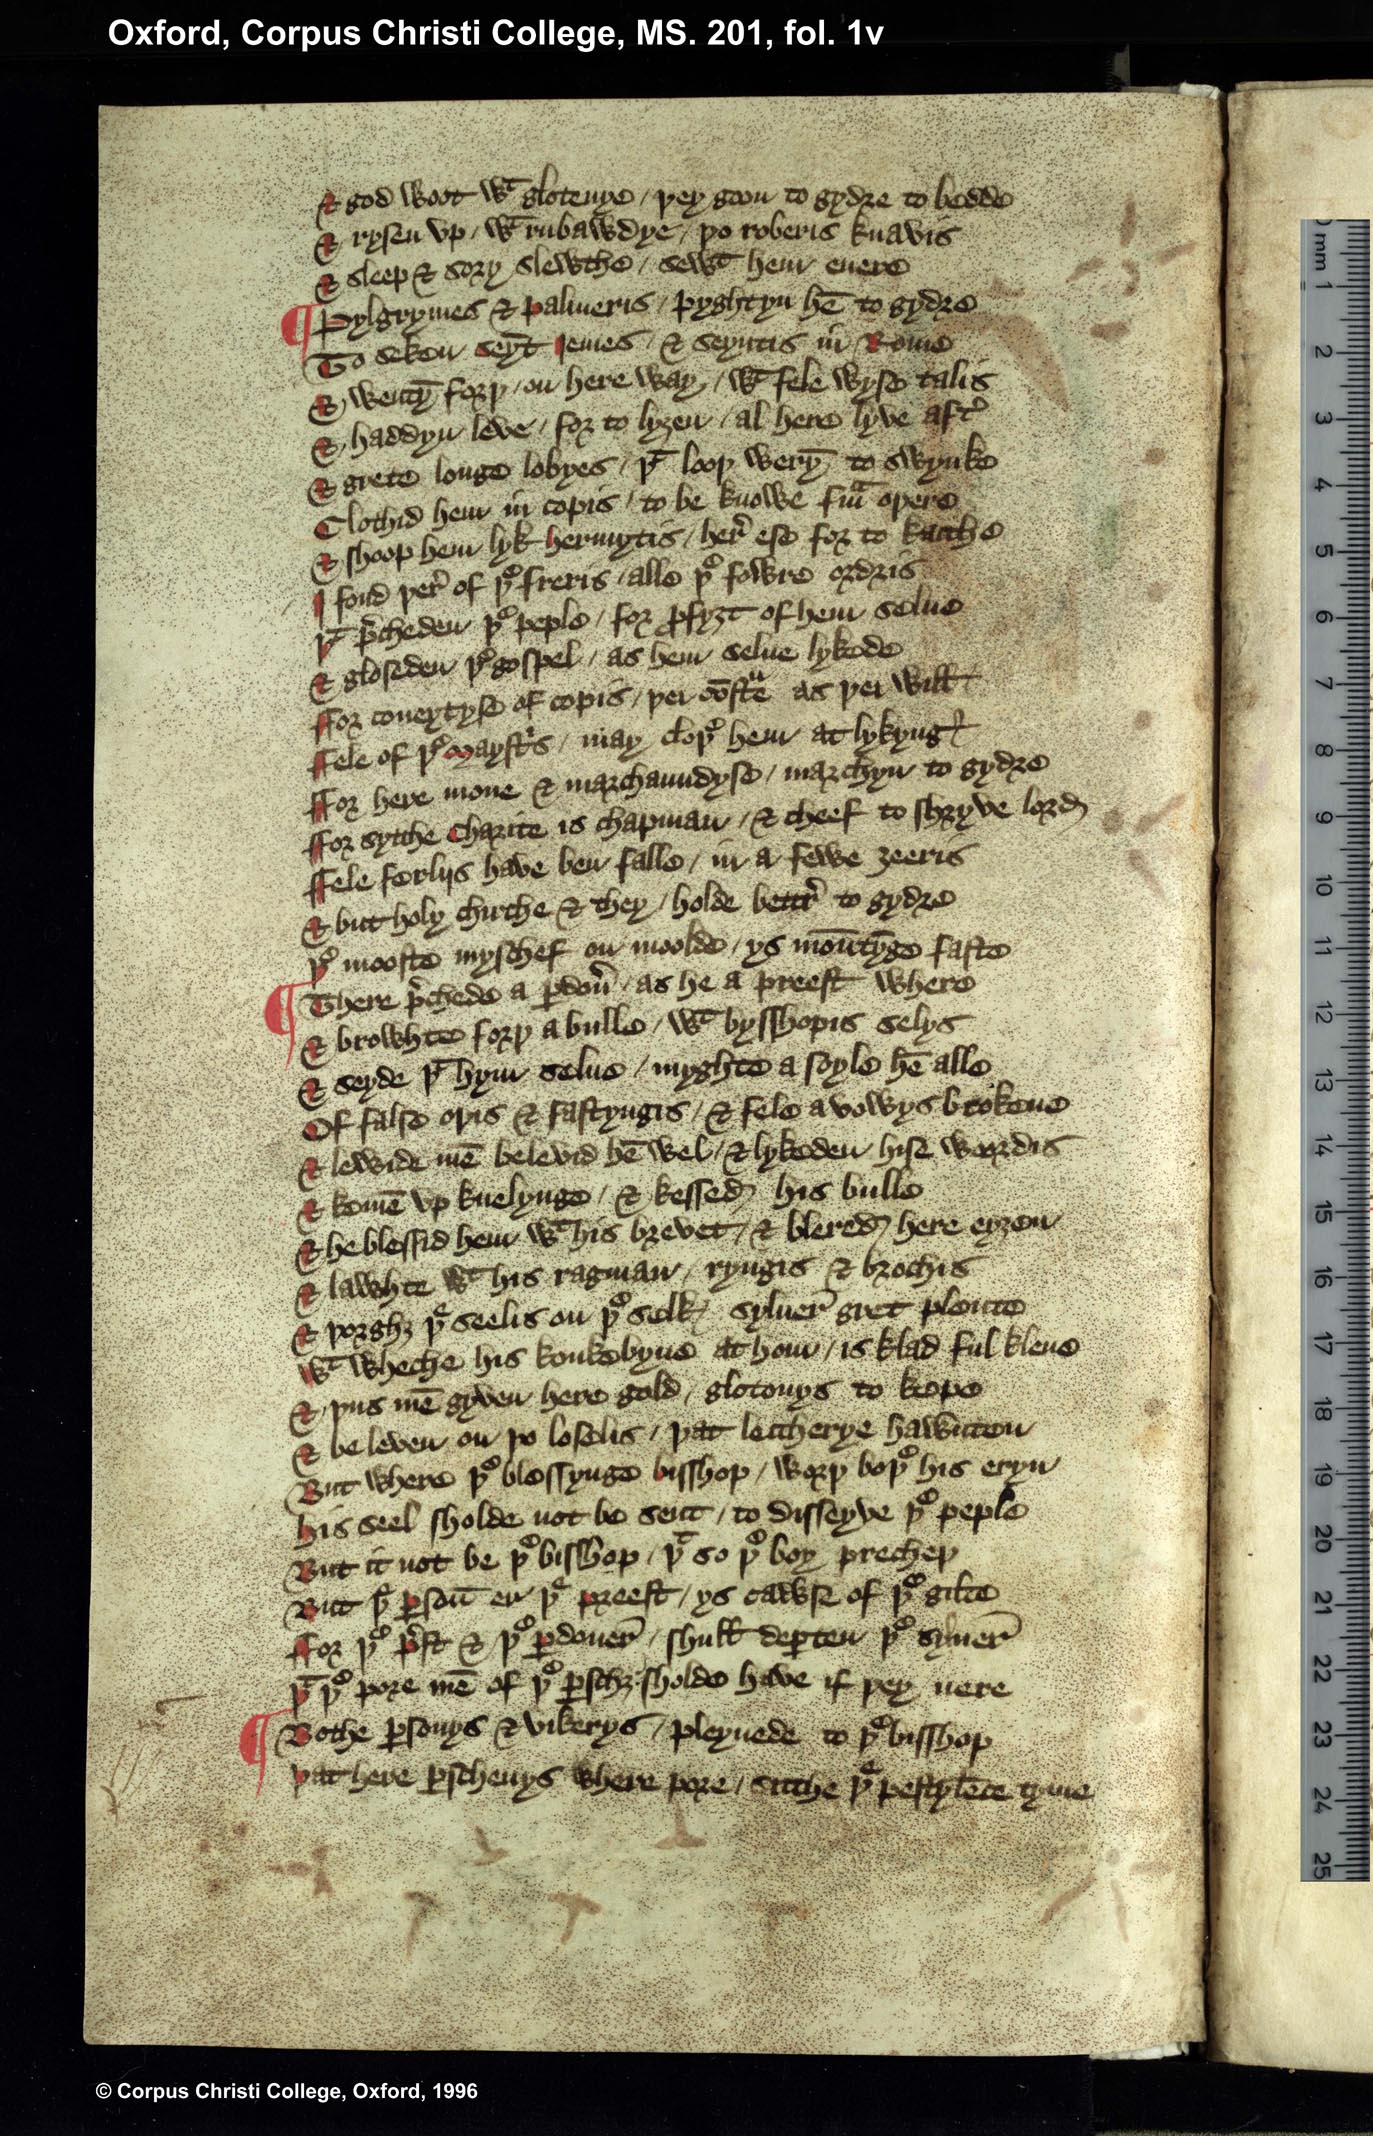 Oxford, Corpus Christi College, MS. 201, fol. 1v
& god woot wt glotenye / þey goon to gydre to bedde
& rysen vp / wt rubawdye / þo roberis knavis
& sleep & sory slewthe / sewt hem euere
¶ Pylgrymes & palmeris / pyghtyn hē to gydre
To seken seyt Iemes / & seyntis in Rome
& wentȳ forþ / on here way / wt fele wyse talis
& haddyn leve / for to lyzen / al here lyve aft'
& grete longe lobyes / þt looþ werȳ to swynke
Clothid hem in copis / to be knowe
& shoop hem lyk hermytis / her' ese for to kacche
I fond þer' of þe freris / alle þe fowre ordris
þt p'cheden þe peple / for profyzt of hem selue
& gloseden þe gospel / as hem selue lykede
For coueytyse of copis / as þei will
Fele of þe mayst's / may cloþe hem at lykyng
For here mone & marchaundyse / marchyn to gydre
For sytthe Charite is chapman / & cheef to shryve lord
Fele ferlijs have ben falle / in a fewe zeeris
& but holy chirche & they / holde bettr' to gydre
þe mooste myschef on moolde / ys mountȳge faste
¶ There p'chede a pardon' / as he a preest where
& browhte forþ a bulle / wt bysshopis selys
& seyde þt hym selue / myghte a soyle hē alle
Of false oþis & fastyngis / & fele avowys brokene
& lewide mē belevid hē wel / & lykeden hise woordis
& komē vp knelynge / & kessed his bulle
& he blessid hem wt his brevet / & blered here eyzen
& lawhte wt his ragman / ryngis & brochis
& þorghz þe seelis on þe selk / syluer gret plente
wt wheche his konkebyne at hom / is klad ful klene
& þus mē gyven here gold / glotonys to kepe
& beleven on þo loselis / þat leccherye hawnten
But where þe blessynge bisshop / worþ boþe his eryn
his seel sholde not be sent / to disseyve þe peple
But it not be þe bisshop / þt so þe boy precheþ
But þe parson er þe preest / ys cawse of þe gilte
For þe p'st & þe pardoner / shull departen þe syluer
þt þe pore mē of þe parschz sholde have if þey nere
¶ Bothe parsonys & vikerys / pleynede to þe bisshop
þat here parschenys where pore / sitthe þe pestylēce tyme
mm 1
2
3
4
5
6
7
8
9
10
11
12
13
14
15
16
17
18
19
20
21
22
23
24
25
© Corpus Christi College, Oxford, 1996